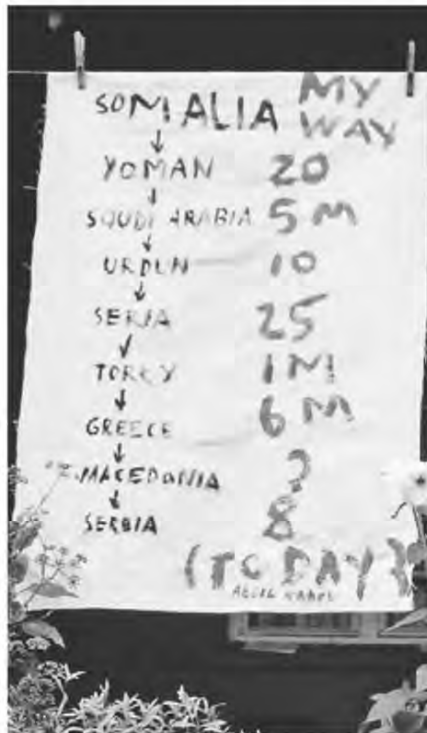 SOMALIA MY WAY
YOMAN 20
SAUDI ARABIA 5 M
URDUN 10
SERIA 25
TORKY 1 M
GREECE 6 M
MACEDONIA ?
SERBIA 8
(TODAY)